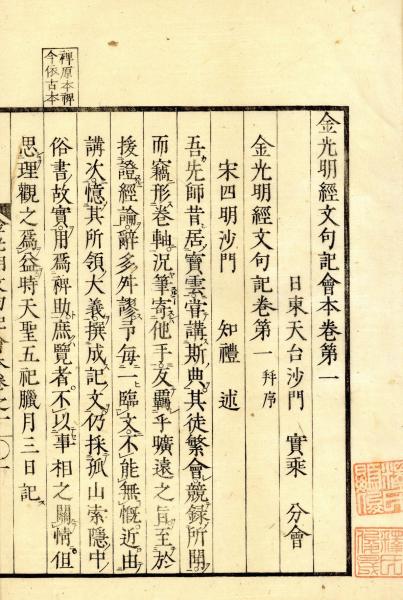 金光明經文句記會本卷第一
日東天台沙門 實乘 分會
金光明經文句記卷第一 并序
宋四明沙門 知禮 述
吾先師昔居寶雲嘗講斯典其徒繁會競錄所聞
而竄形卷軸況筆寄他手友覊乎曠遠之旨至於
援證經論辭多舛謬予每一臨文不能無慨近由
講次憶其所領大義撰成記文仍採孤山索隱中
俗書故實用爲裨助庶覽者不以事相之關情但
思理觀之爲益時天聖五祀臘月三日記
裨原本裨
今依古本